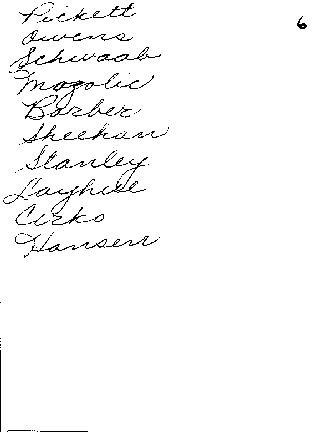 Pickett
6
Owens
Schwaab
Mogolic
Barber
Sheehan
Stanley
Layhue
Cirko
Hansen